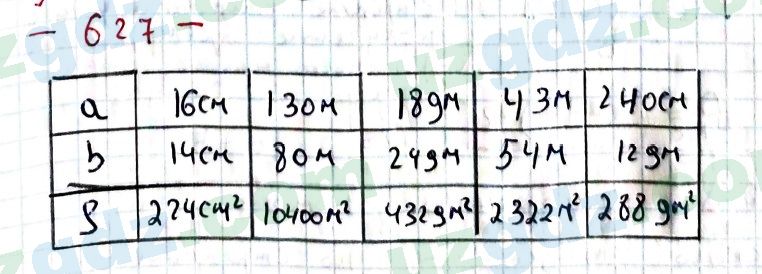 - 627 -
a 16см 130м 18дм 43м 240см
b 14см 80м 24дм 54м 12дм
S 224см² 10400м² 432дм² 2322м² 288дм²